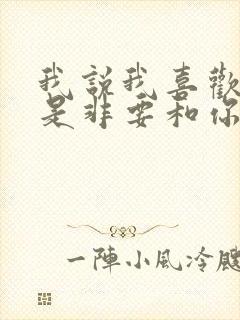 我說我喜歡
是非要和你
一陣小風冷颼